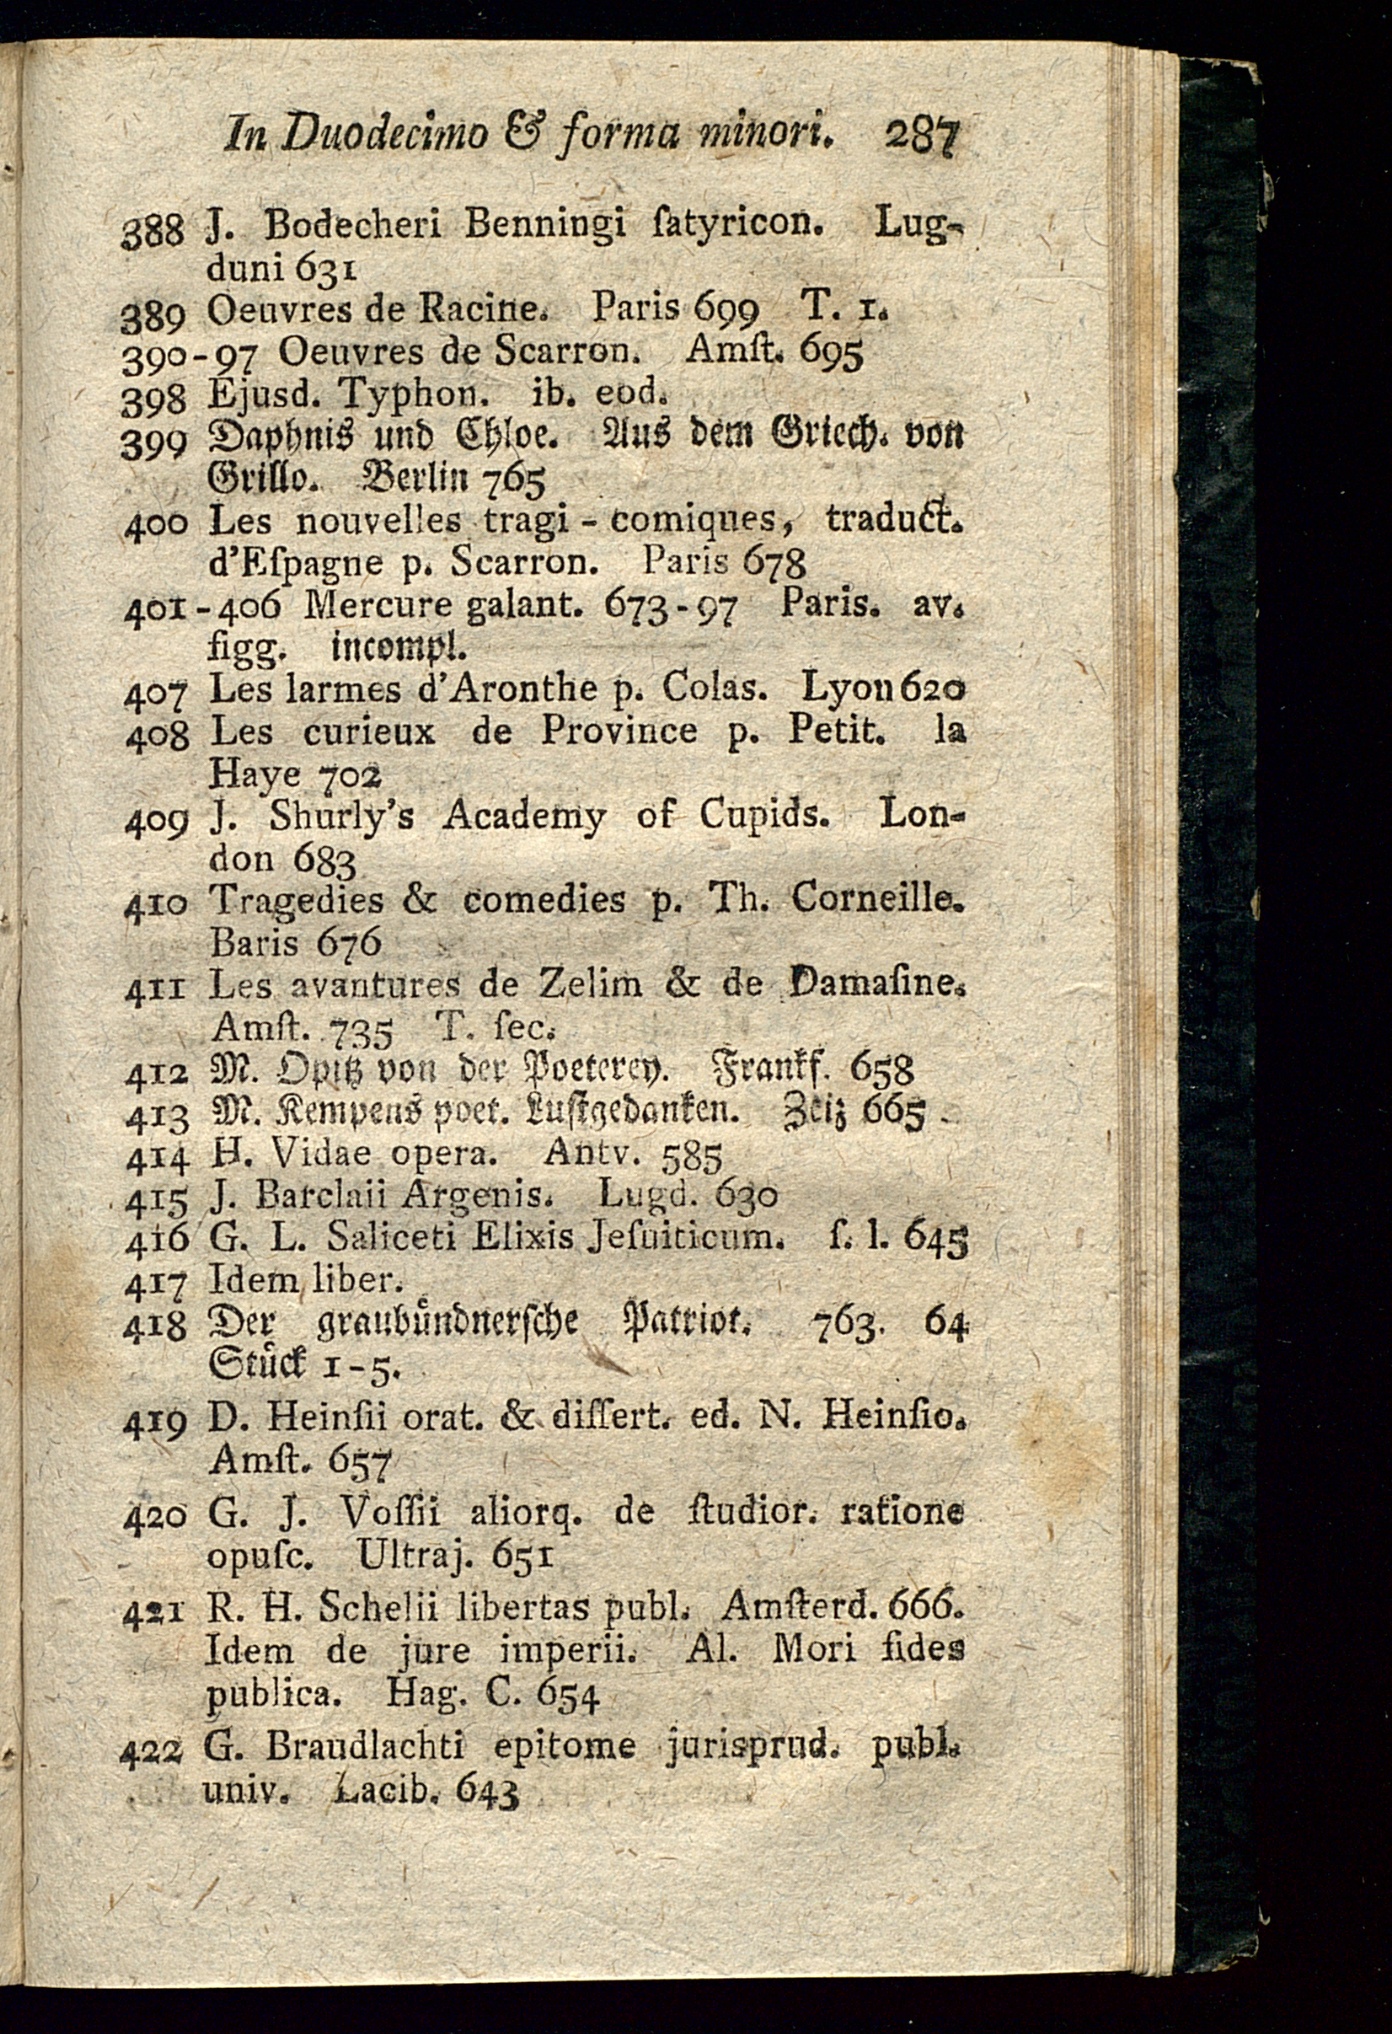 In Duodecimo & forma minori. 287
388 J. Bodecheri Benningi ſatyricon. Lug-
duni 631
389 Oeuvres de Racine. Paris 699 T. 1.
390-97 Oeuvres de Scarron. Amſt. 695
398 Ejusd. Typhon. ib. eod.
399 Daphnis und Chloe. Aus dem Griech. von
Grillo. Berlin 765
400 Les nouvelles tragi - comiques, traduct.
d'Eſpagne p. Scarron. Paris 678
401-406 Mercure galant. 673-97 Paris. av.
figg. incompl.
407 Les larmes d'Aronthe p. Colas. Lyon 620
408 Les curieux de Province p. Petit. la
Haye 702
409 J. Shurly's Academy of Cupids. Lon-
don 683
410 Tragedies & comedies p. Th. Corneille.
Baris 676
411 Les avantures de Zelim & de Damaſine.
Amſt. 735 T. ſec.
412 M. Opitz von der Poeterey. Frankf. 658
413 M. Kempens poet. Luſtgedanken. Zeiz 665
414 H. Vidae opera. Antv. 585
415 J. Barclaii Argenis. Lugd. 630
416 G. L. Saliceti Elixis Jeſuiticum. ſ. l. 645
417 Idem liber.
418 Der graubündnerſche Patriot. 763. 64
Stück 1-5.
419 D. Heinſii orat. & diſſert. ed. N. Heinſio.
Amſt. 657
420 G. J. Voſſii aliorq. de ſtudior. ratione
opuſc. Ultraj. 651
421 R. H. Schelii libertas publ. Amſterd. 666.
Idem de jure imperii. Al. Mori fides
publica. Hag. C. 654
422 G. Braudlachti epitome jurisprud. publ.
univ. Lacib. 643